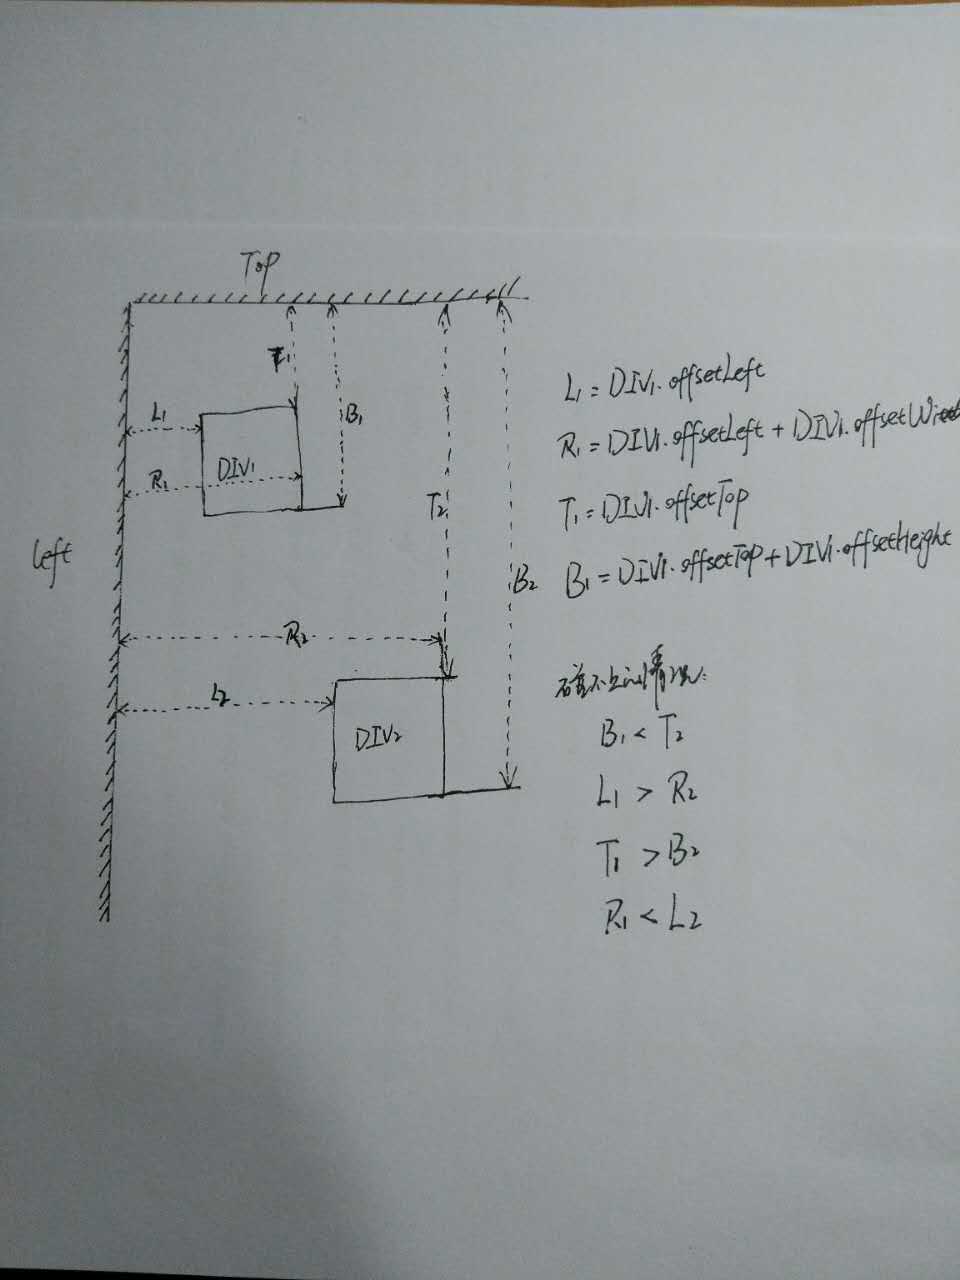 Top
T₁
L₁
B₁
DIV₁
R₁
T₂
left
B₂
R₂
L₂
DIV₂
L₁ = DIV₁.offsetLeft
R₁ = DIV₁.offsetLeft + DIV₁.offsetWidth
T₁ = DIV₁.offsetTop
B₁ = DIV₁.offsetTop + DIV₁.offsetHeight
碰不上的情况:
B₁ < T₂
L₁ > R₂
T₁ > B₂
R₁ < L₂